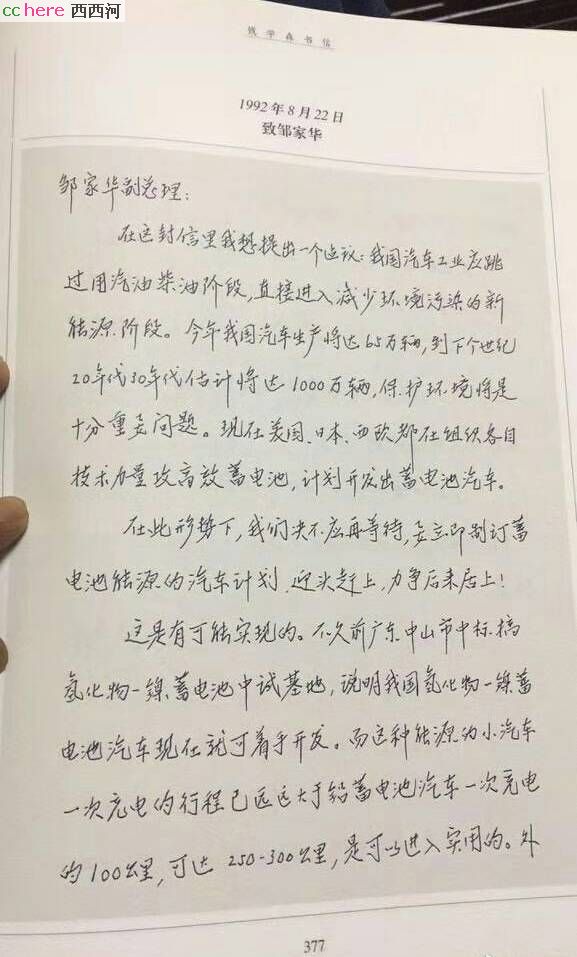 cchere 西西河
钱学森书信
1992年8月22日
致邹家华
邹家华副总理：
在这封信里我想提出一个建议：我国汽车工业应跳
过用汽油柴油阶段，直接进入减少环境污染的新
能源阶段。今年我国汽车生产将达65万辆，到下个世纪
20年代30年代估计将达1000万辆，保护环境将是
十分重要问题。现在美国、日本、西欧都在组织各自
技术力量攻高效蓄电池，计划开发出蓄电池汽车。
在此形势下，我们决不应再等待，要立即制订蓄
电池能源的汽车计划，迎头赶上，力争后来居上！
这是有可能实现的。不久前广东中山市中标搞
氢化物—镍蓄电池中试基地，说明我国氢化物—镍蓄
电池汽车现在就可着手开发。而这种能源的小汽车
一次充电的行程已远远大于铅蓄电池汽车一次充电
的100公里，可达250-300公里，是可以进入实用的。外
377